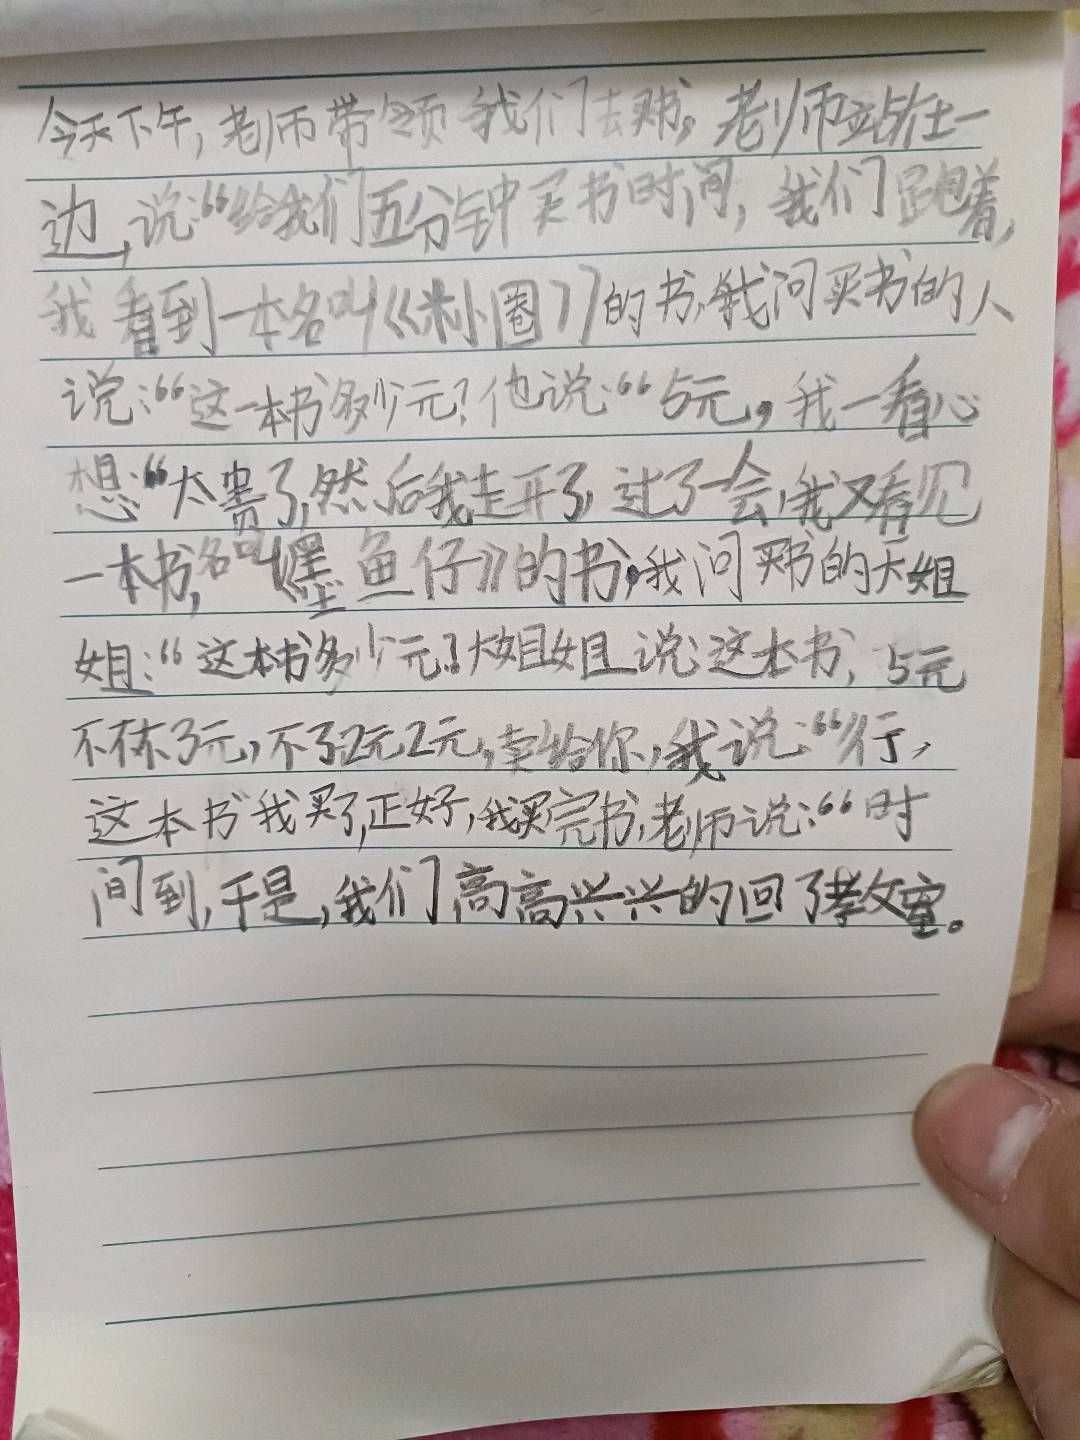 今天下午,老师带领我们去买书。老师站在一
边,说:“给我们五分钟买书时间,我们跑着,
我看到一本名叫《米小圈》的书,我问买书的人
说:“这一本书多少元?他说:“5元。我一看心
想:“太贵了,然后我走开了,过了一会,我又看见
一本书,名叫《墨鱼仔》的书,我问买书的大姐
姐:“这本书多少元?大姐姐说:这本书,5元
不不了元,不了2元2元,卖给你,我说:“行,
这本书我买了,正好,我买完书,老师说:“时
间到,于是,我们高高兴兴的回了教室。